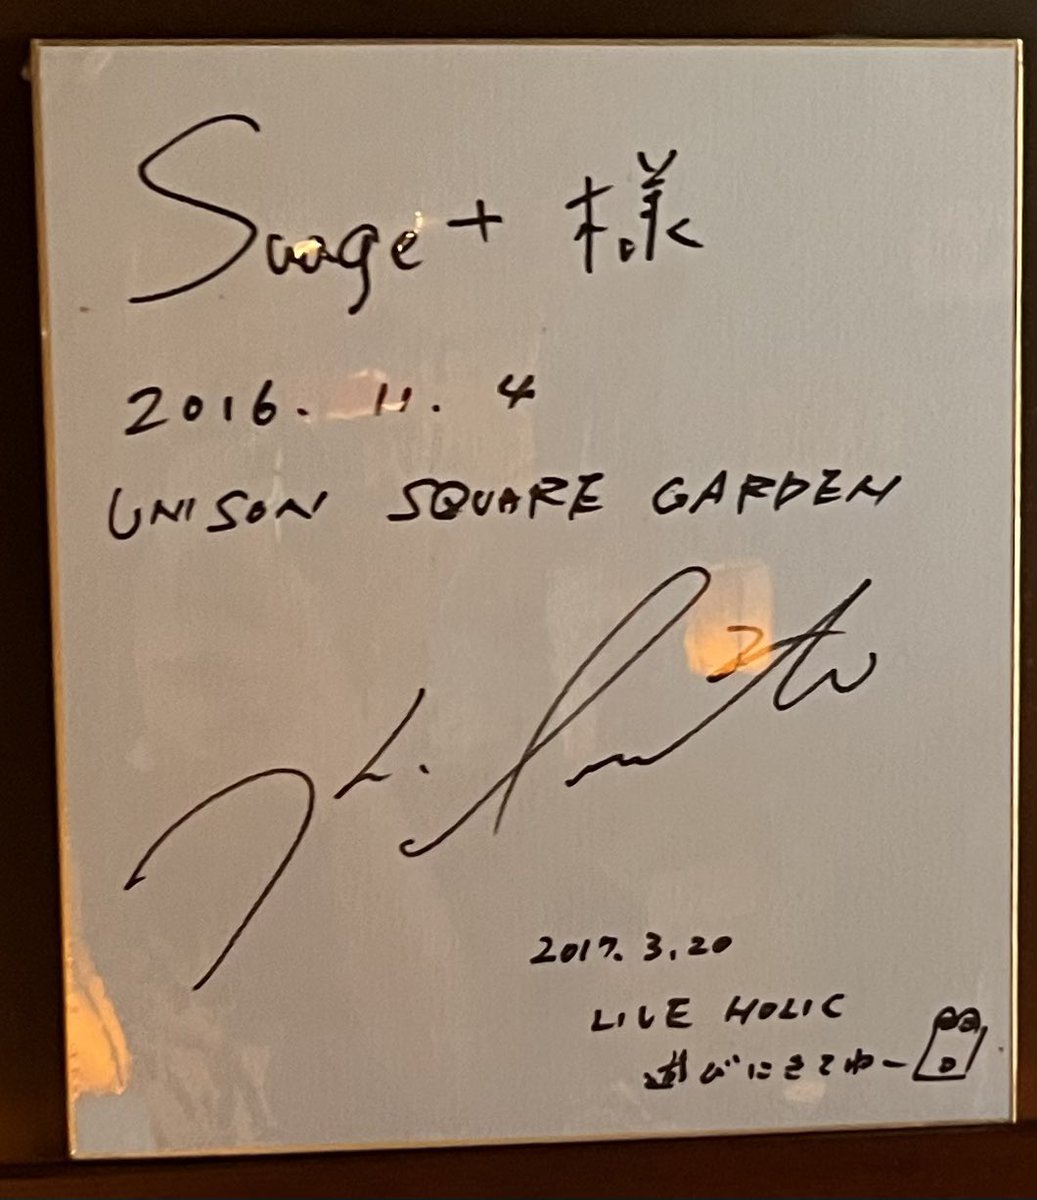 Suage+ 様
2016. 11. 4
UNISON SQUARE GARDEN
2017. 3. 20
LIVE HOLIC
遊びにきてねー